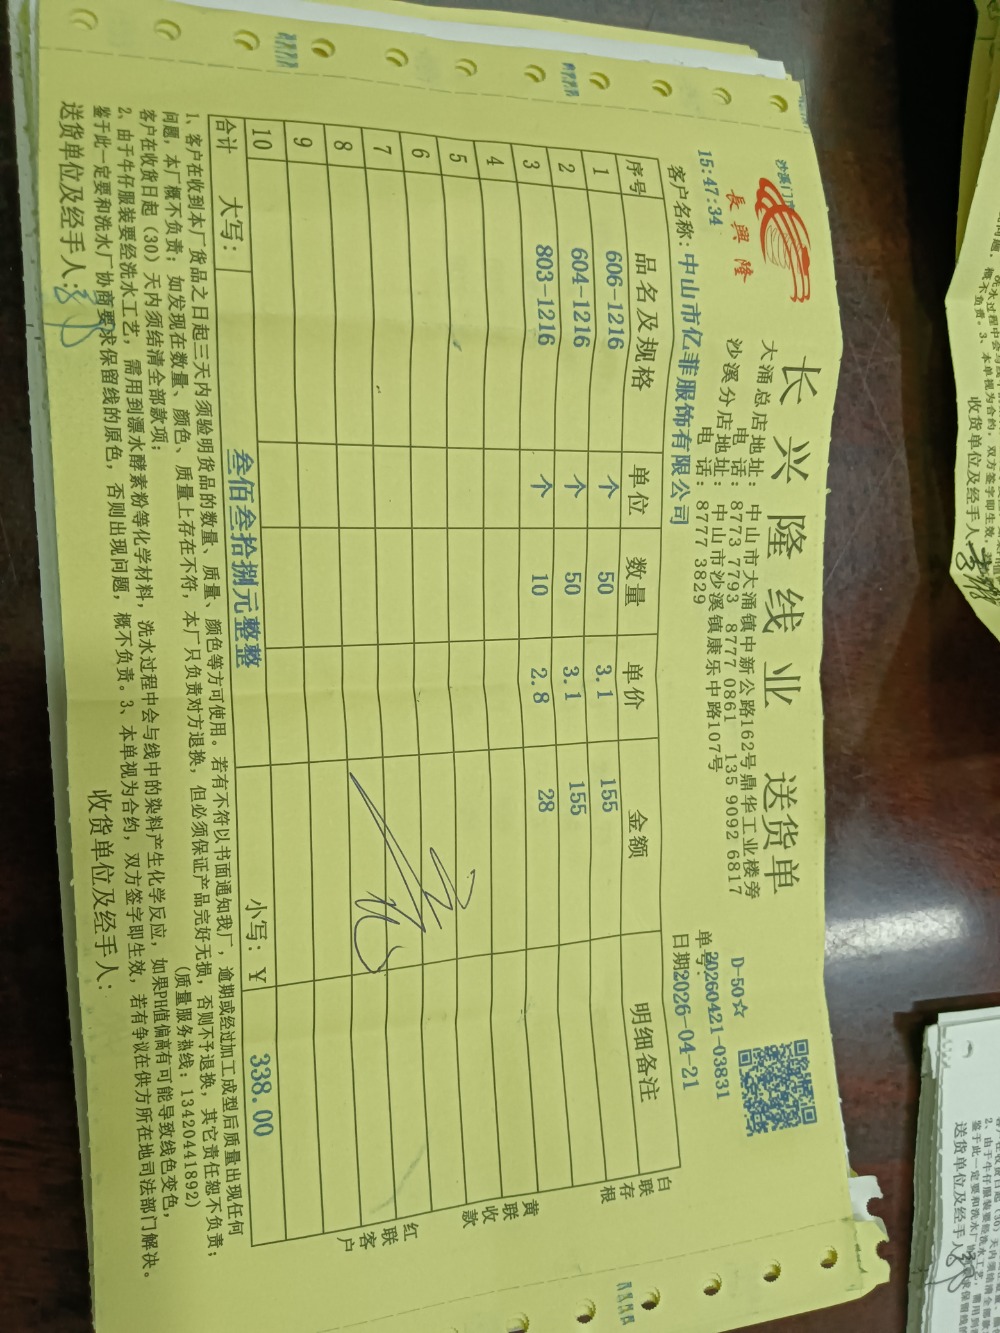 沙溪门市
長興隆
长兴隆线业 送货单
大涌总店地址：中山市大涌镇中新公路162号鼎华工业楼旁
电 话：8773 7793 8777 0861 135 9092 6817
沙溪分店地址：中山市沙溪镇康乐中路107号
电 话：8777 3829
D-50☆
单号：20260421-03831
日期2026-04-21
15:47:34
客户名称：中山市亿菲服饰有限公司
序号 品名及规格 单位 数量 单价 金额 明细备注
1 606-1216 个 50 3.1 155
2 604-1216 个 50 3.1 155
3 803-1216 个 10 2.8 28
4
5
6
7
8
9
10
合计 大写： 叁佰叁拾捌元整整 小写：¥ 338.00
白联存根
黄联收款
红联客户
1、客户在收到本厂货品之日起三天内须验明货品的数量、质量、颜色等方可使用。若有不符以书面通知我厂，逾期或经过加工成型后质量出现任何
问题，本厂概不负责；如发现在数量、颜色、质量上存在不符，本厂只负责对方退换，但必须保证产品完好无损，否则不予退换，其它责任恕不负责；
客户在收货日起（30）天内须结清全部款项； （质量服务热线：13420441892）
2、由于牛仔服装要经洗水工艺，需用到漂水酵素粉等化学材料，洗水过程中会与线中的染料产生化学反应，如果PH值偏高有可能导致线色变色，
鉴于此一定要和洗水厂协商要求保留线的原色，否则出现问题，概不负责。3、本单视为合约，双方签字即生效，若有争议在供方所在地司法部门解决。
送货单位及经手人： 收货单位及经手人：
概不负责。3、本单视为合约，双方签字即生效，
收货单位及经手人
2、由于牛仔服装要经洗水工艺，需用到
鉴于此一定要和洗水厂协商要求保留线的
送货单位及经手人